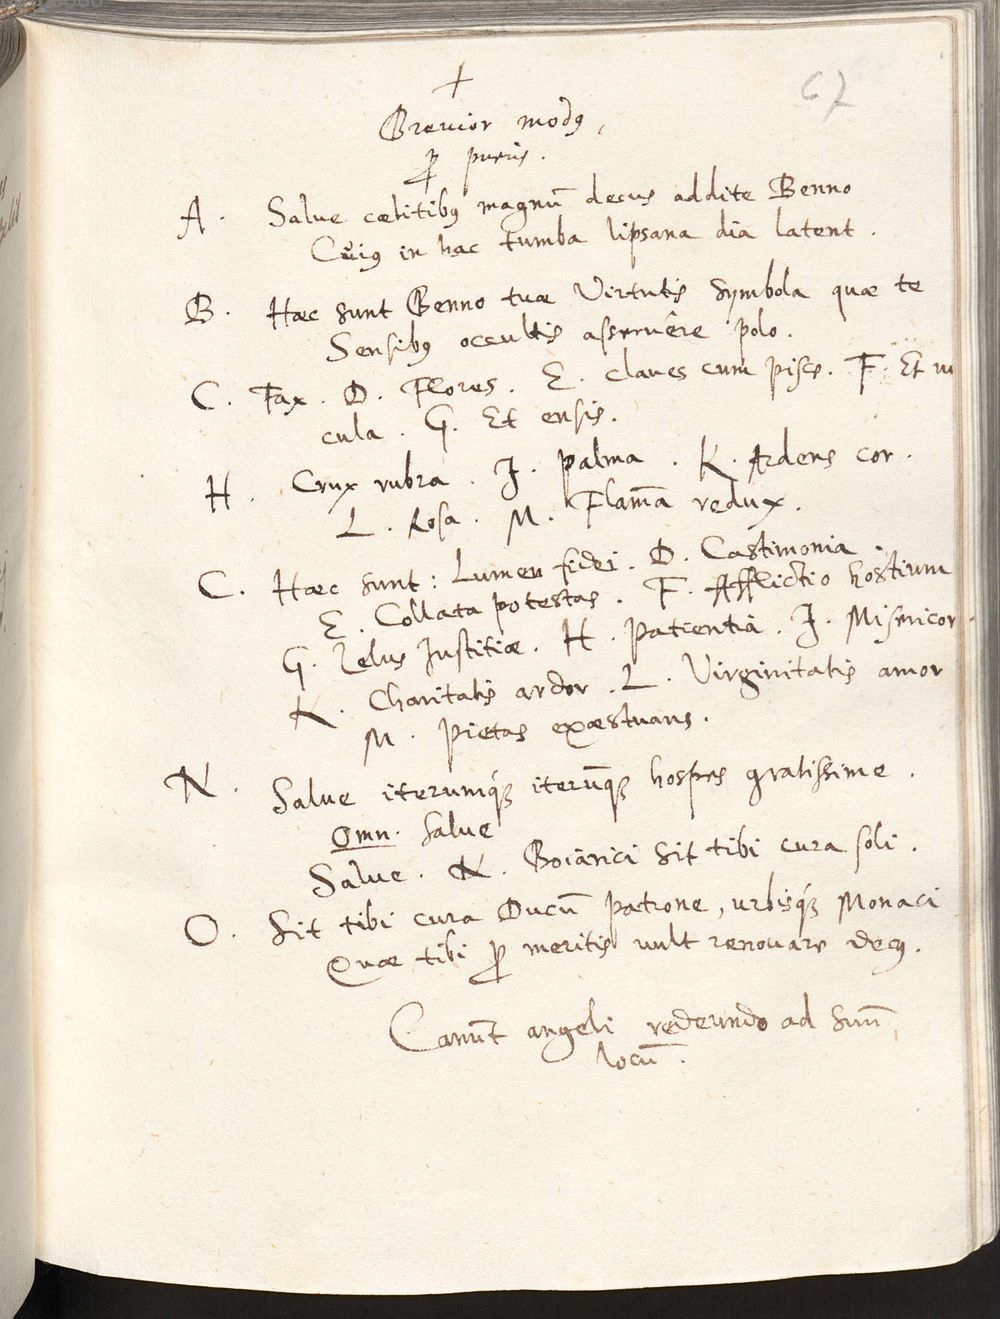 +
67
Brevior modꝰ,
ꝓ pueris.
A. Salue cælitibꝰ magnū decus addite Benno
Cuiꝰ in hac tumba lipsana dia latent.
B. Hæc sunt Benno tuæ Virtutis symbola quæ te
Sensibꝰ occultis asseruêre polo.
C. Fax. D. Flores. E. claues cum pisce. F. Et vi
cula. G. Et ensis.
H. Crux rubra. J. palma. K. Ardens cor.
L. Rosa. M. Flam̄a redux.
C. Hæc sunt: Lumen fidei. D. Castimonia.
E. Collata potestas. F. Afflictio hostium
G. Zelus Justitiæ. H. Patientia. J. Misericor
K. Charitatis ardor. L. Virginitatis amor
M. Pietas exæstuans.
N. Salue iterumq́ꝫ iterūqꝫ hospes gratissime.
Omn. Salue
Salue. N. Boiarici sit tibi cura soli.
O. Sit tibi cura Ducū patrone, urbisq́ꝫ Monaci
Quæ tibi ꝓ meritis vult renouare decꝰ.
Canūt angeli redeundo ad suū
locū.